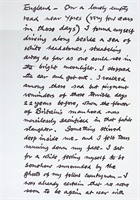 England - On a lonely empty
road near Ypres (very few cars
in those days) I found myself
driving along beside a sea of
white headstones, stretching
away as far as one could see in
the bright moonlight. I stopped
the car and got out. I walked
among these sad but poignant
reminders of those terrible days
22 years before, when the flower
of Britain's manhood was
mercilessly sacrificed in that futile
slaughter. Something stirred
deep inside me, and I felt tears
running down my face. I sat
for a while, feeling myself to be
somehow surrounded by the
ghosts of my fellow countrymen - I
was already certain that we were
soon to be again at war with